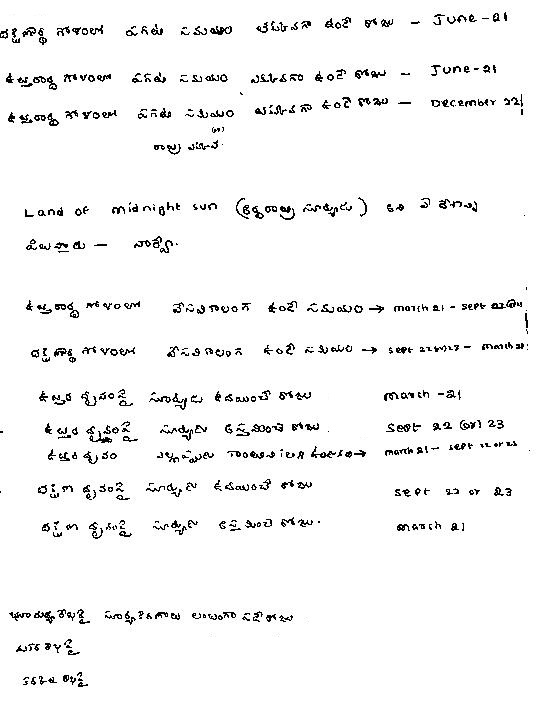 దక్షిణార్థ గోళంలో పగటి సమయం తక్కువగా ఉండే రోజు - June-21
ఉత్తరార్థ గోళంలో పగటి సమయం ఎక్కువగా ఉండే రోజు - June-21
ఉత్తరార్థ గోళంలో పగటి సమయం తక్కువగా ఉండే రోజు - December 22
(or)
రాత్రి ఎక్కువ.
Land of midnight sun (అర్ధరాత్రి సూర్యుడు) అని ఏ దేశాన్ని
పిలుస్తారు - నార్వే.
ఉత్తరార్థ గోళంలో వేసవికాలంగా ఉండే సమయం → march 21 - sept 22
దక్షిణార్థ గోళంలో వేసవికాలంగా ఉండే సమయం → sept 22 or 23 - march 21
ఉత్తర ధృవంపై సూర్యుడు ఉదయించే రోజు march -21
ఉత్తర ధృవంపై సూర్యుడు అస్తమించే రోజు. sept 22 (or) 23
ఉత్తర ధృవం → march 21 - sept 22 or 23
దక్షిణ ధృవంపై సూర్యుడు ఉదయించే రోజు sept 22 or 23
దక్షిణ ధృవంపై సూర్యుడు అస్తమించే రోజు. march 21
భూమధ్యరేఖపై సూర్యకిరణాలు లంబంగా పడే రోజు
మకర రేఖపై
కర్కట రేఖపై